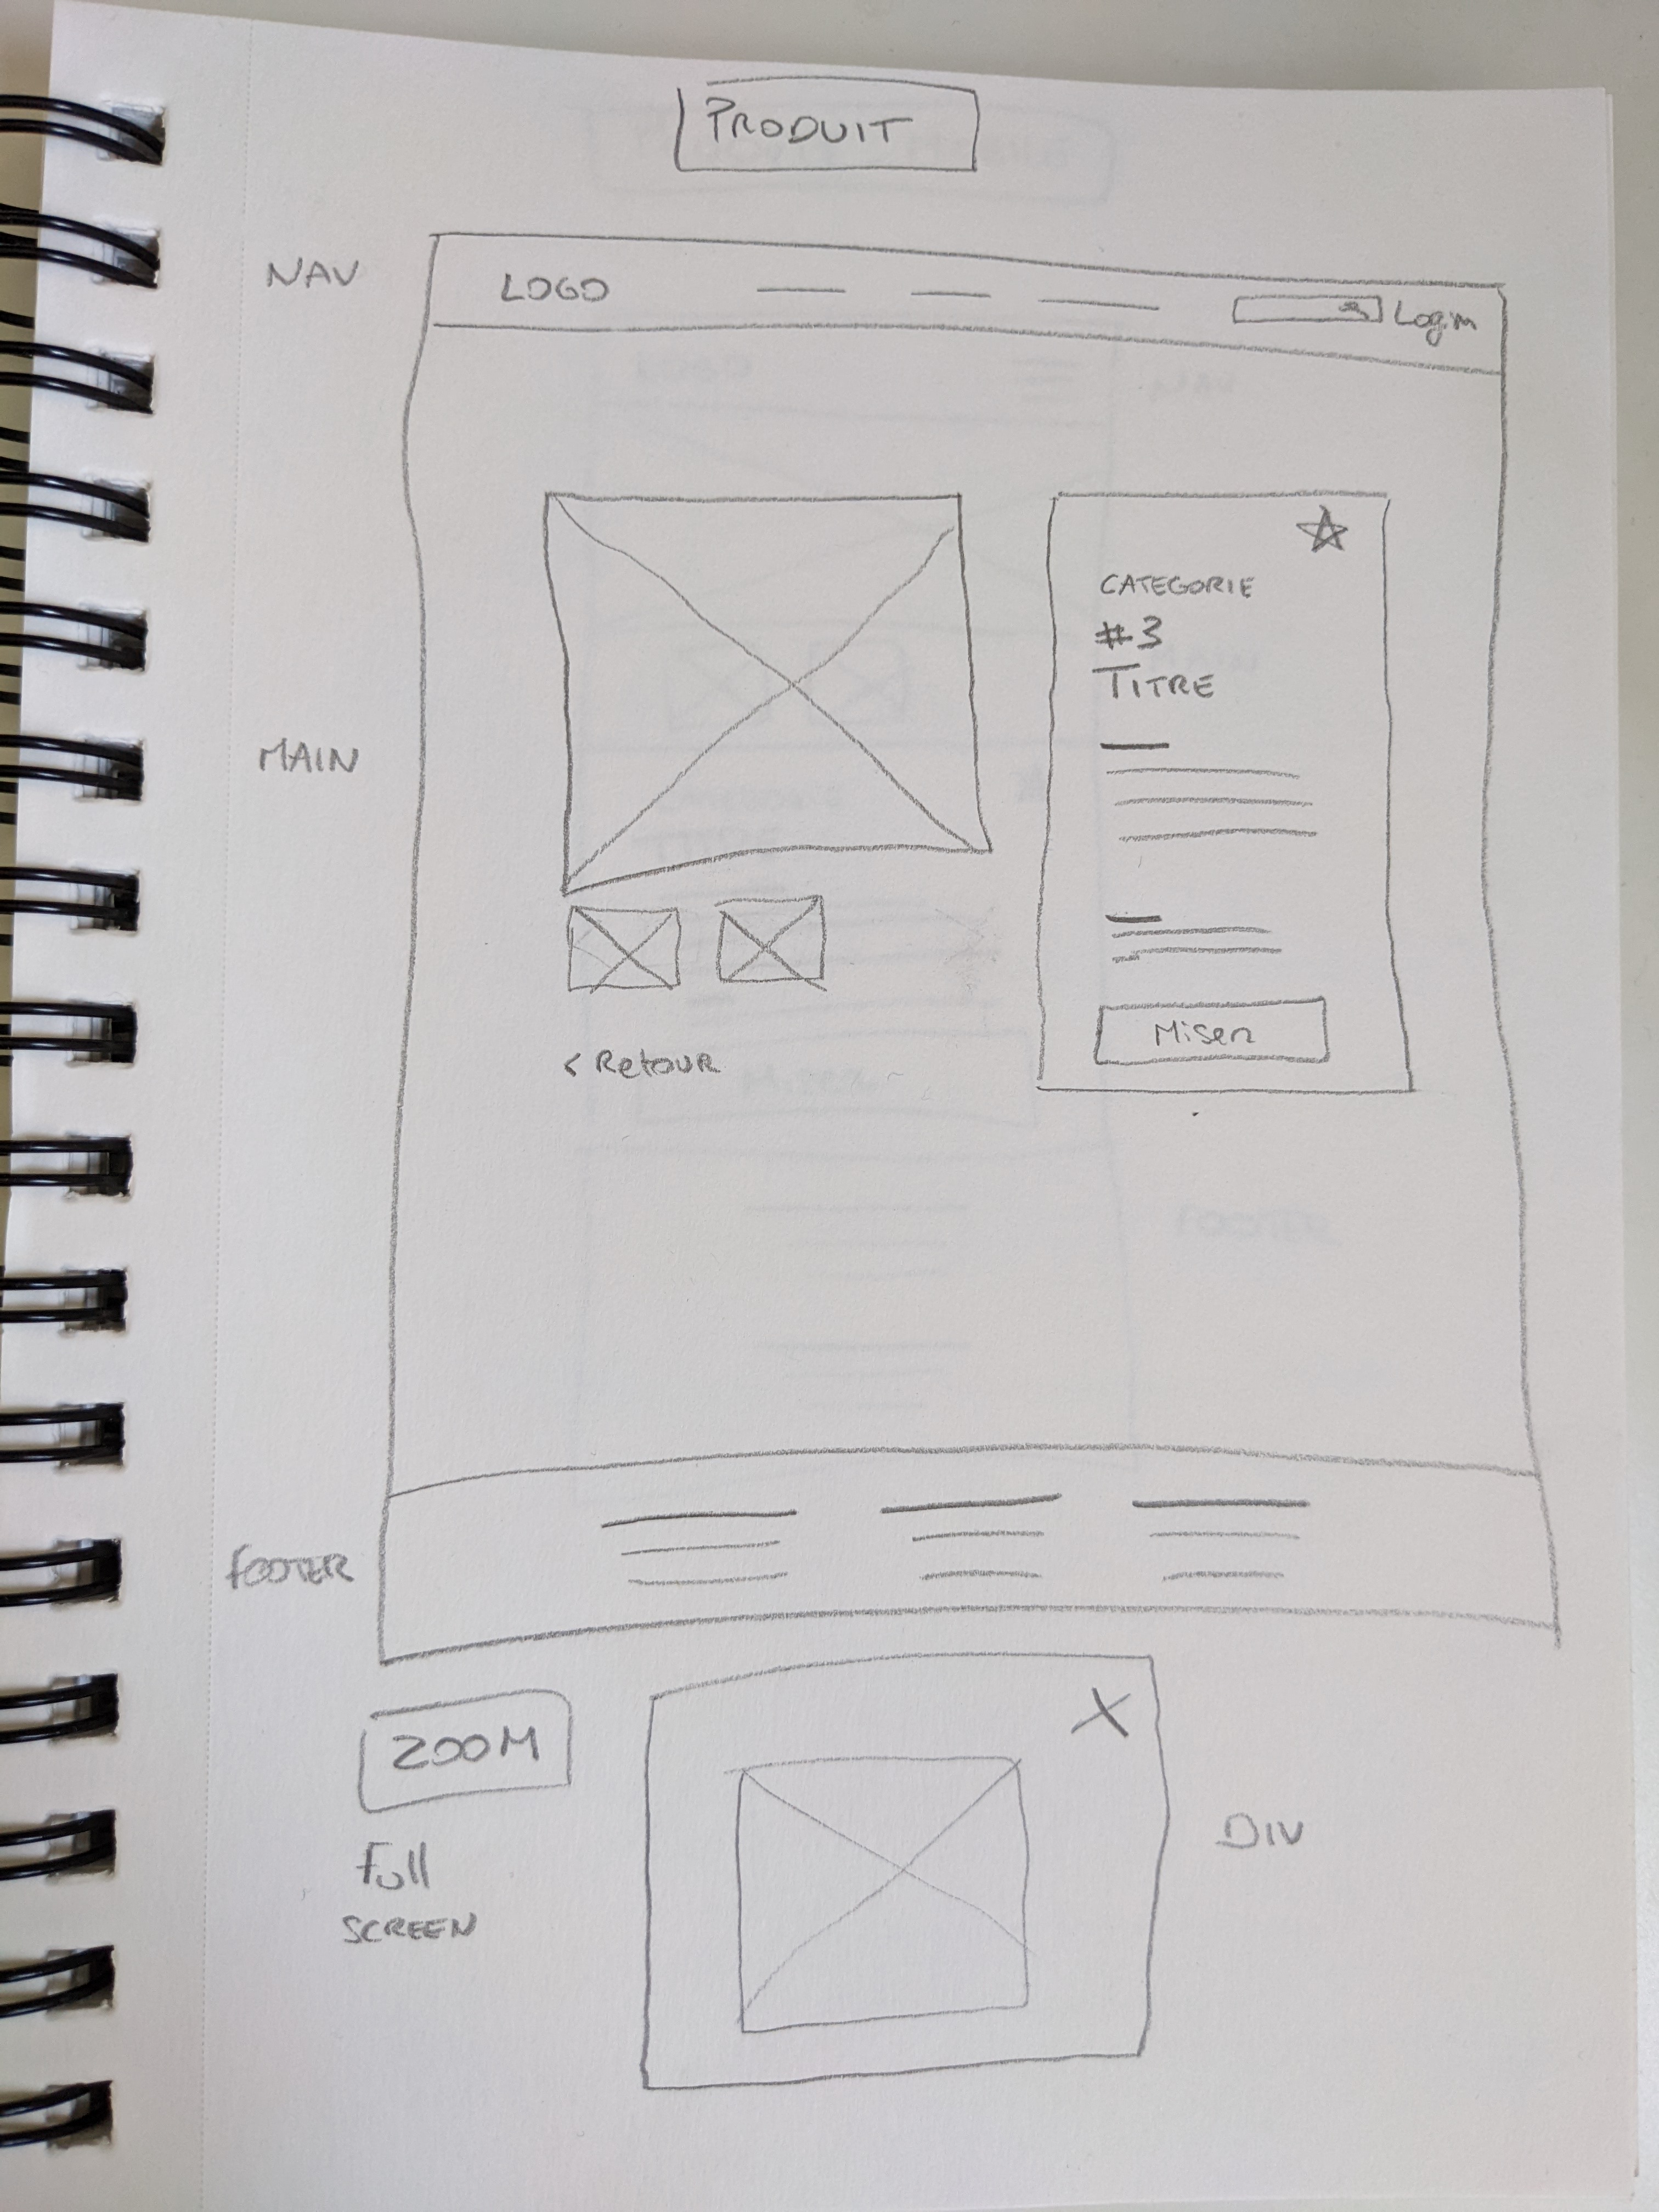 PRODUIT
NAV
LOGO
Login
CATEGORIE
#3
TITRE
MAIN
Miser
< Retour
FOOTER
ZOOM
Full
SCREEN
X
DIV